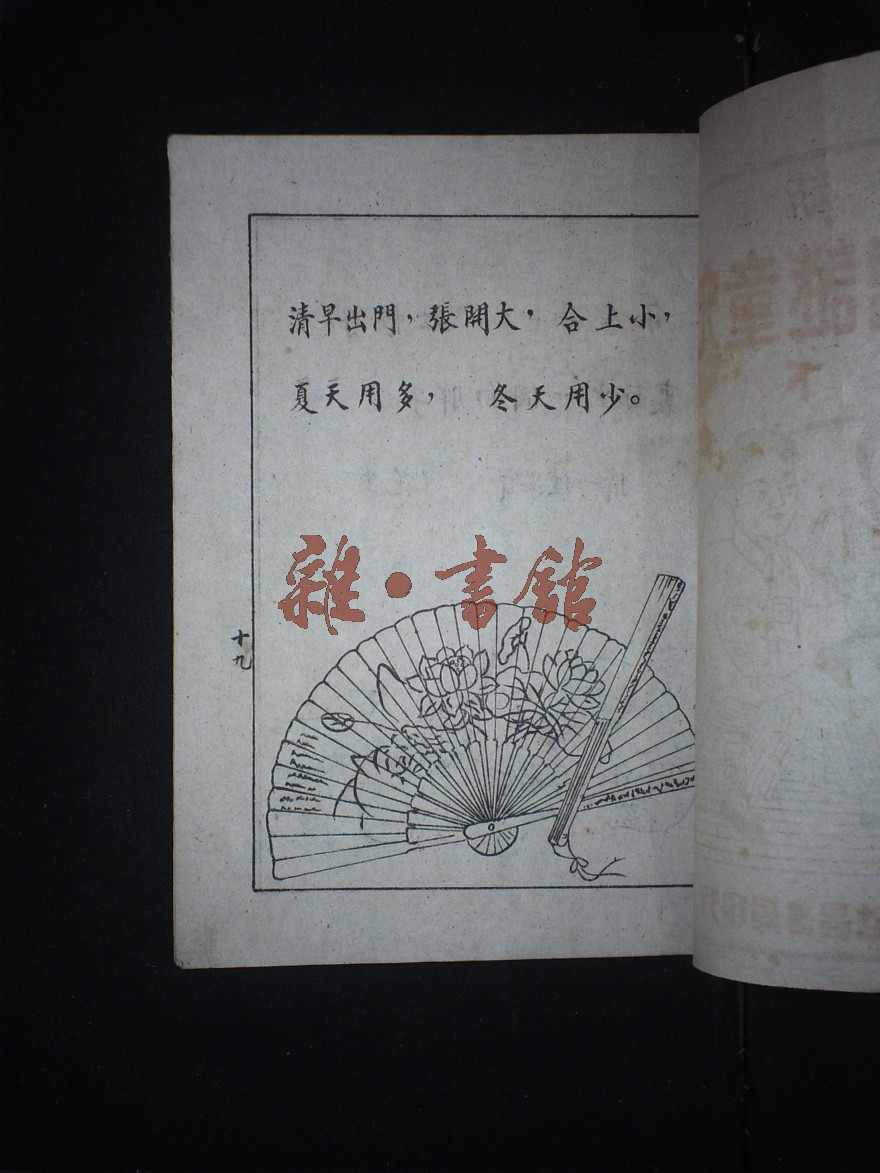 清早出門，張開大，合上小，
夏天用多，冬天用少。
雜·書館
十九